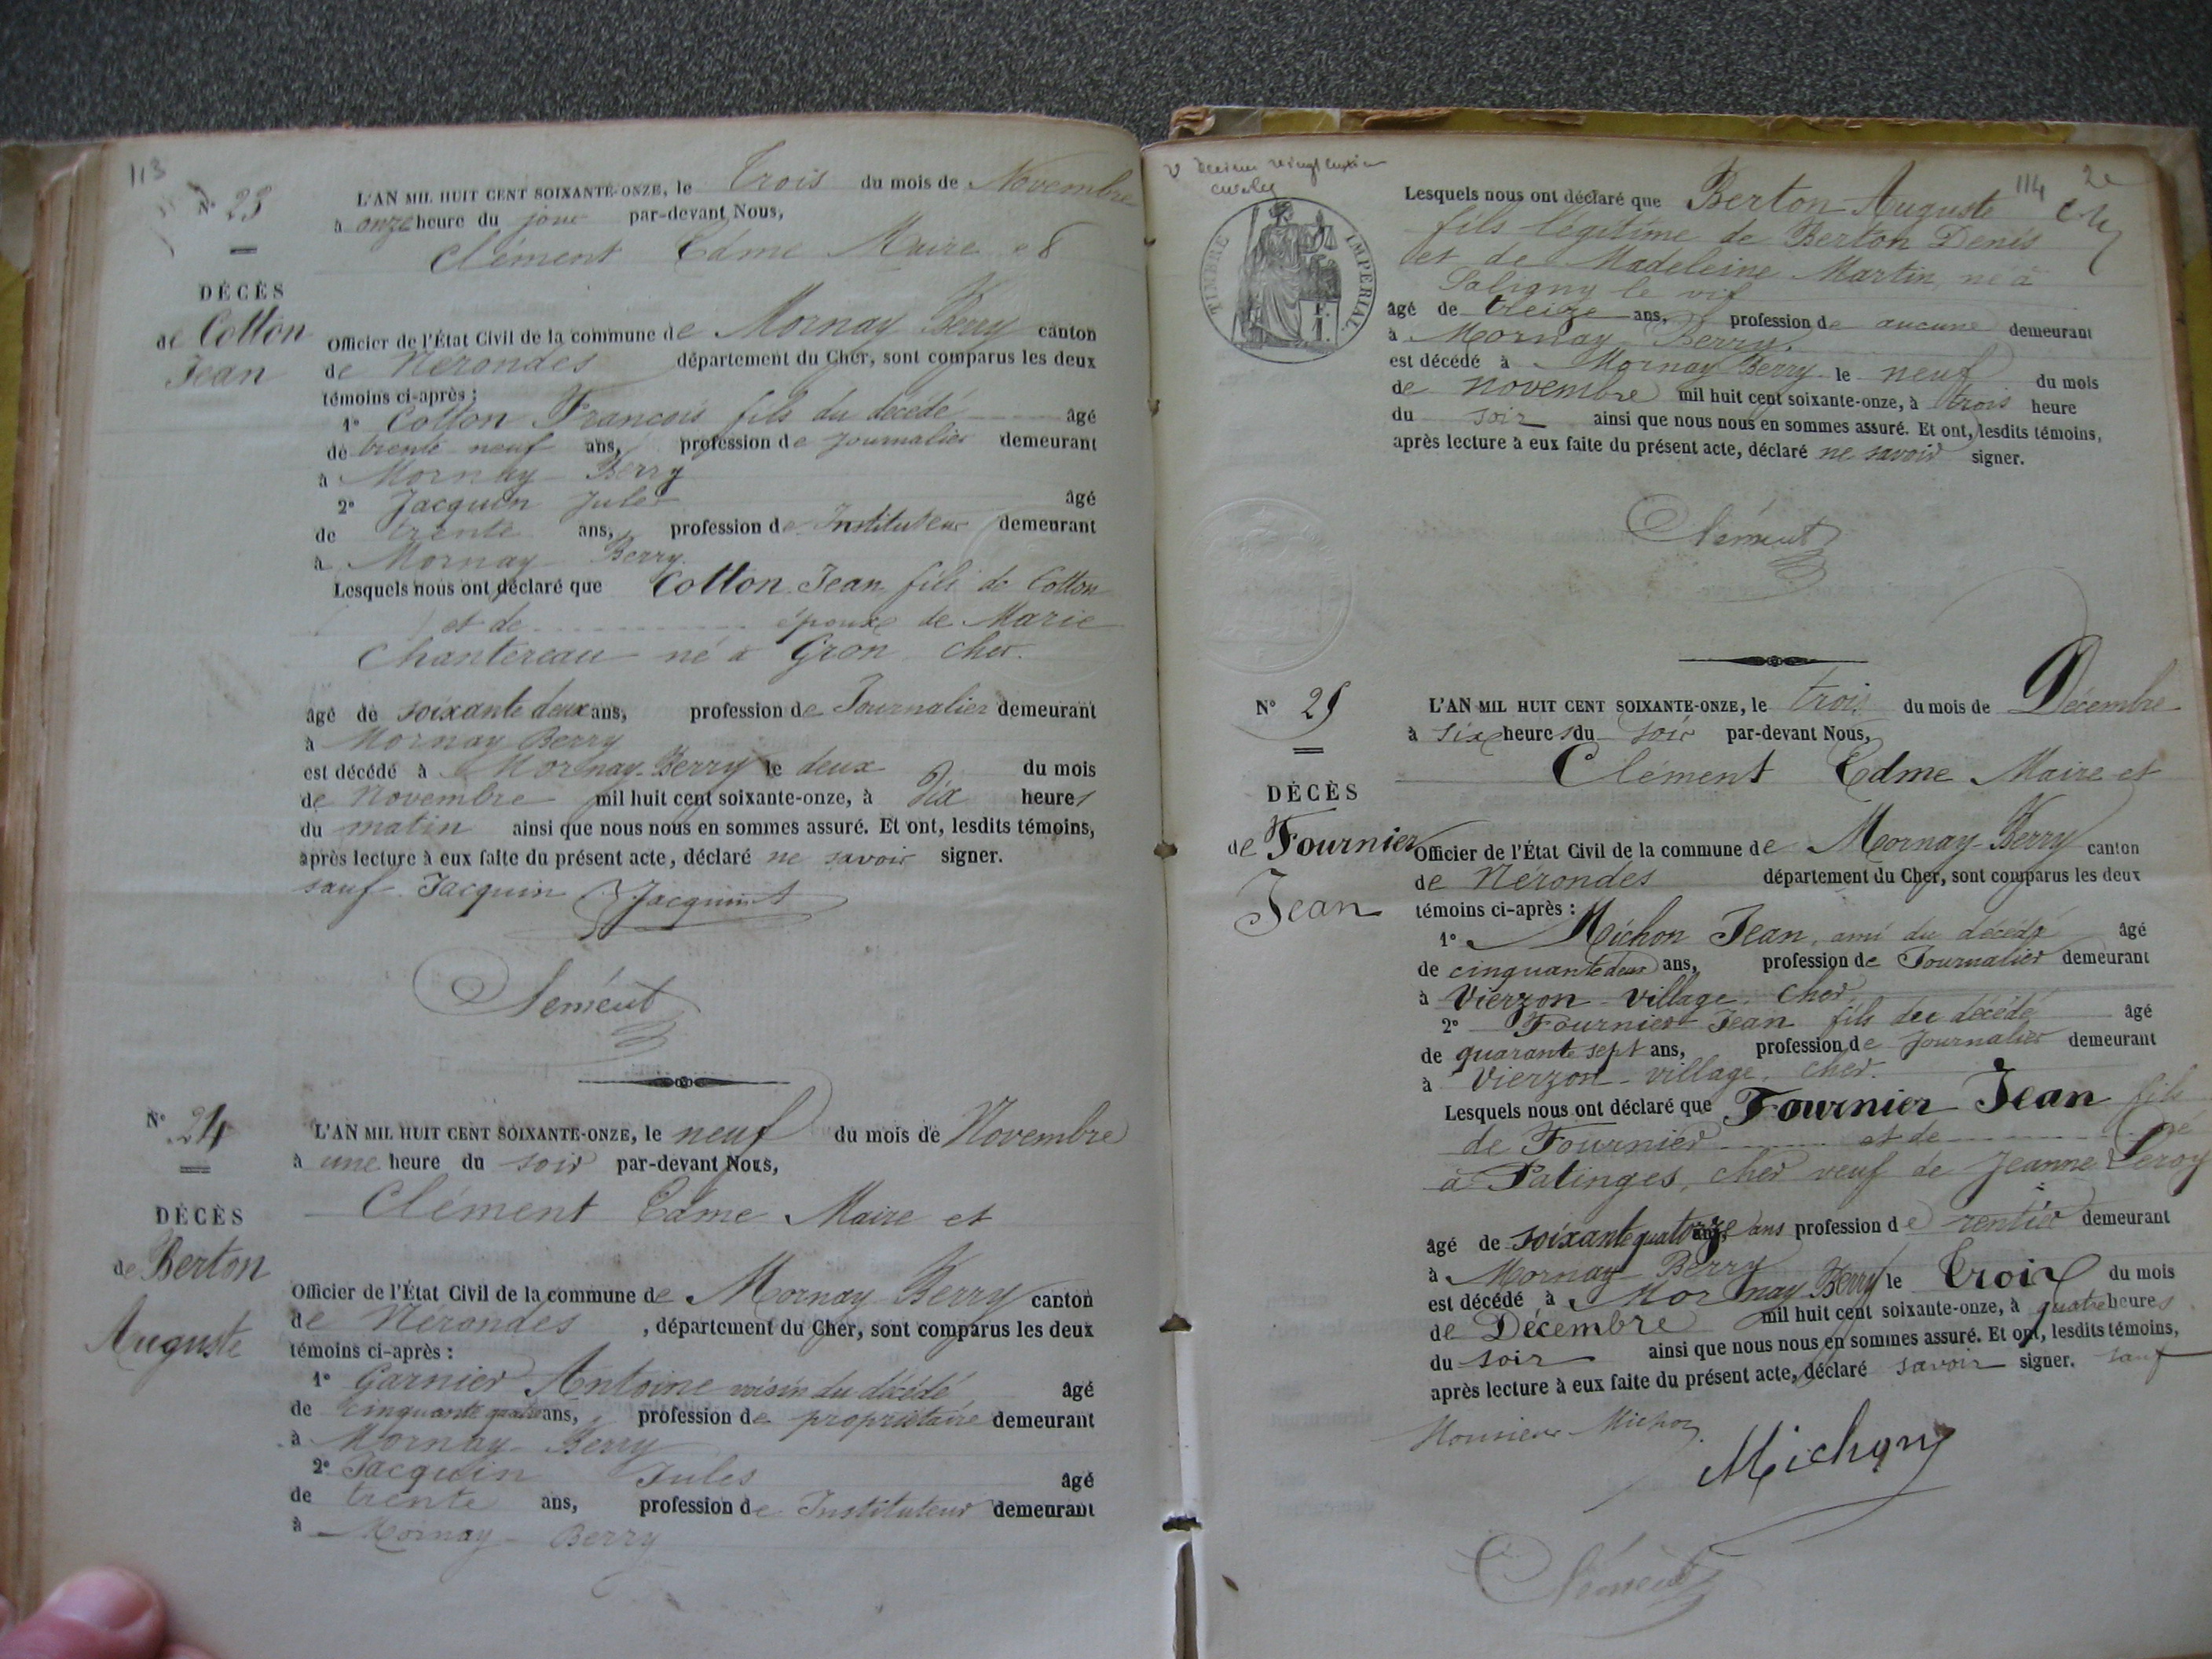 113
N° 23
DÉCÈS
de Cotton
Jean
L'AN MIL HUIT CENT SOIXANTE-ONZE, le Trois du mois de Novembre
à onze heure du jour par-devant Nous,
Clément Edme Maire
Officier de l'État Civil de la commune de Mornay Berry canton
de Nérondes département du Cher, sont comparus les deux
témoins ci-après :
1° Cotton François fils du décédé âgé
de trente neuf ans, profession de journalier demeurant
à Mornay Berry
2° Jacquin Jules âgé
de trente ans, profession de Instituteur demeurant
à Mornay Berry
Lesquels nous ont déclaré que Cotton Jean fils de Cotton
et de époux de Marie
Chantereau né à Gron Cher.
âgé de soixante deux ans, profession de Journalier demeurant
à Mornay Berry
est décédé à Mornay-Berry le deux du mois
de Novembre mil huit cent soixante-onze, à dix heures
du matin ainsi que nous nous en sommes assuré. Et ont, lesdits témoins,
après lecture à eux faite du présent acte, déclaré ne savoir signer.
sauf Jacquin Jacquin
Clément
N° 24
DÉCÈS
de Berton
Auguste
L'AN MIL HUIT CENT SOIXANTE-ONZE, le neuf du mois de Novembre
à une heure du soir par-devant Nous,
Clément Edme Maire et
Officier de l'État Civil de la commune de Mornay Berry canton
de Nérondes , département du Cher, sont comparus les deux
témoins ci-après :
1° Garnier Antoine voisin du décédé âgé
de cinquante quatre ans, profession de propriétaire demeurant
à Mornay-Berry
2° Jacquin Jules âgé
de trente ans, profession de Instituteur demeurant
à Mornay-Berry
114
2e
TIMBRE IMPERIAL
Lesquels nous ont déclaré que Berton Auguste
fils légitime de Berton Denis
et de Madeleine Martin, né à
Saligny le vif
âgé de treize ans, profession de aucune demeurant
à Mornay Berry.
est décédé à Mornay Berry le neuf du mois
de novembre mil huit cent soixante-onze, à trois heure
du soir ainsi que nous nous en sommes assuré. Et ont, lesdits témoins,
après lecture à eux faite du présent acte, déclaré ne savoir signer.
Clément
N° 25
DÉCÈS
de Fournier
Jean
L'AN MIL HUIT CENT SOIXANTE-ONZE, le trois du mois de Décembre
à six heures du soir par-devant Nous,
Clément Edme Maire et
Officier de l'État Civil de la commune de Mornay-Berry canton
de Nérondes département du Cher, sont comparus les deux
témoins ci-après :
1° Michon Jean, ami du décédé âgé
de cinquante deux ans, profession de Journalier demeurant
à Vierzon-village. Cher
2° Fournier Jean fils du décédé âgé
de quarante sept ans, profession de Journalier demeurant
à Vierzon-village. cher.
Lesquels nous ont déclaré que Fournier Jean fils
de Fournier et de né
à Patinges, cher veuf de Jeanne Leroy
âgé de soixante quatorze ans profession de rentier demeurant
à Mornay Berry
est décédé à Mornay Berry le Trois du mois
de Décembre mil huit cent soixante-onze, à quatre heures
du soir ainsi que nous nous en sommes assuré. Et ont, lesdits témoins,
après lecture à eux faite du présent acte, déclaré savoir signer. sauf
Monsieur Michon
Michon
Clément